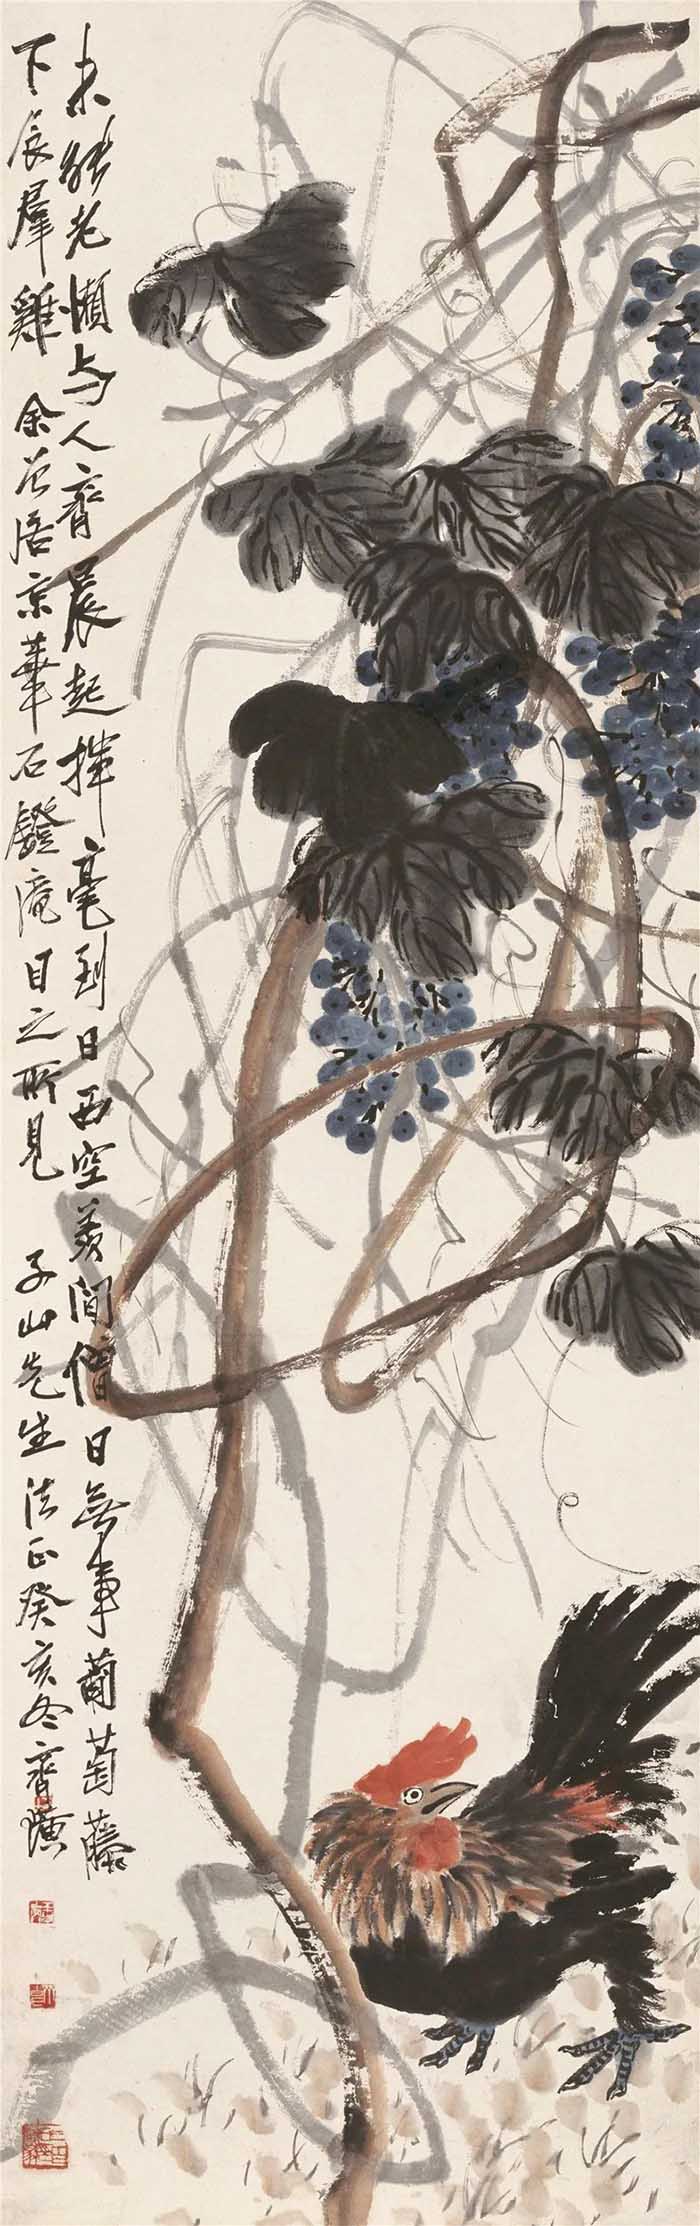 未能老懶与人齊晨起揮毫到日西空羡閒僧日無事葡萄藤
下羣雞 余曾居京華石鐙庵目之所見 子山先生法正癸亥冬齊璜